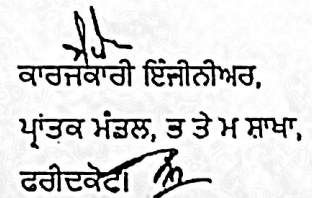 ਕਾਰਜਕਾਰੀ ਇੰਜੀਨੀਅਰ,
ਪ੍ਰਾਂਤਕ ਮੰਡਲ, ਭ ਤੇ ਮ ਸ਼ਾਖਾ,
ਫਰੀਦਕੋਟ।